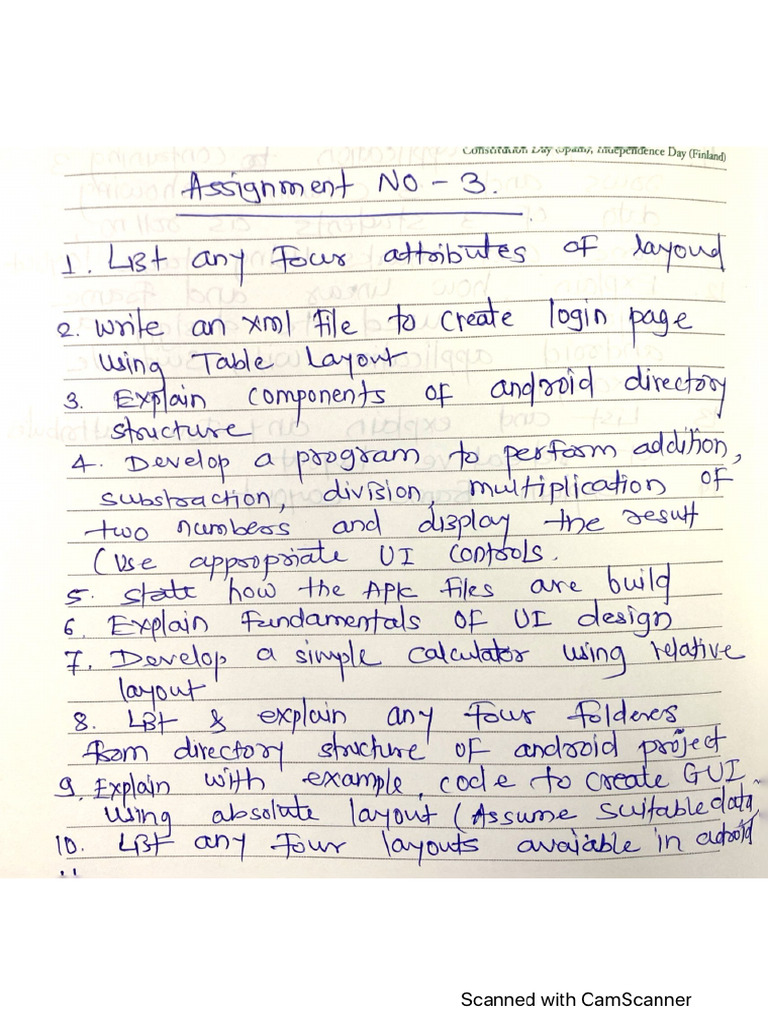 Constitution Day (Spain), Independence Day (Finland)
Assignment No - 3.
1. List any four attributes of layoud
2. Write an xml file to create login page
using Table Layout
3. Explain components of android directory
structure
4. Develop a program to perform addition,
substraction, division, multiplication of
two numbers and display the result
(Use appropriate UI controls.
5. State how the APK files are build
6. Explain fundamentals of UI design
7. Develop a simple calculator using relative
layout
8. List & explain any four folderes
from directory structure of android project
9. Explain with example, code to create GUI
using absolute layout (Assume suitable data
10. List any four layouts avaiable in adroid
Scanned with CamScanner